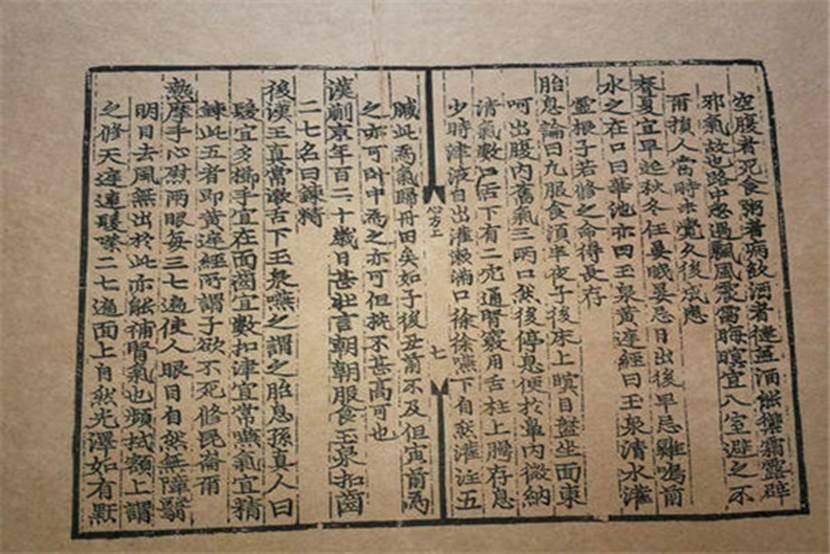 空腹者死食粥者病飲酒者徤蓋酒能禦霜露辟
邪氣故也路中忽遇飄風震雷晦暝宜入室避之不
爾損人當時未覺久後成應
春夏宜早起秋冬任晏眠晏忌日出後早忌雞鳴前
水之在口曰華池亦曰玉泉黃庭經曰玉泉清水灌
靈根子若修之命得長存
胎息論曰凡服食須半夜子後床上瞑目盤坐面東
呵出腹內舊氣三兩口然後停息便於鼻內微納
清氣數口舌下有二穴通腎竅用舌柱上腭存息
少時津液自出灌漱滿口徐徐嚥下自然灌注五
七
臟此爲氣歸丹田矣如子後丑前不及但寅前爲
之亦可卧中爲之亦可但枕不甚高可也
漢蒯京年百二十歲日甚壯言朝朝服食玉泉扣齒
二七名曰鍊精
後漢王真常漱舌下玉泉嚥之謂之胎息孫真人曰
髮宜多櫛手宜在面齒宜數扣津宜常嚥氣宜精
鍊此五者即黃庭經所謂子欲不死修崑崙爾
熱摩手心熨兩眼每三七遍使人眼目自然無障翳
明目去風無出於此亦能補腎氣也頻拭額上謂
之修天庭連髮際二七遍面上自然光澤如有䵟